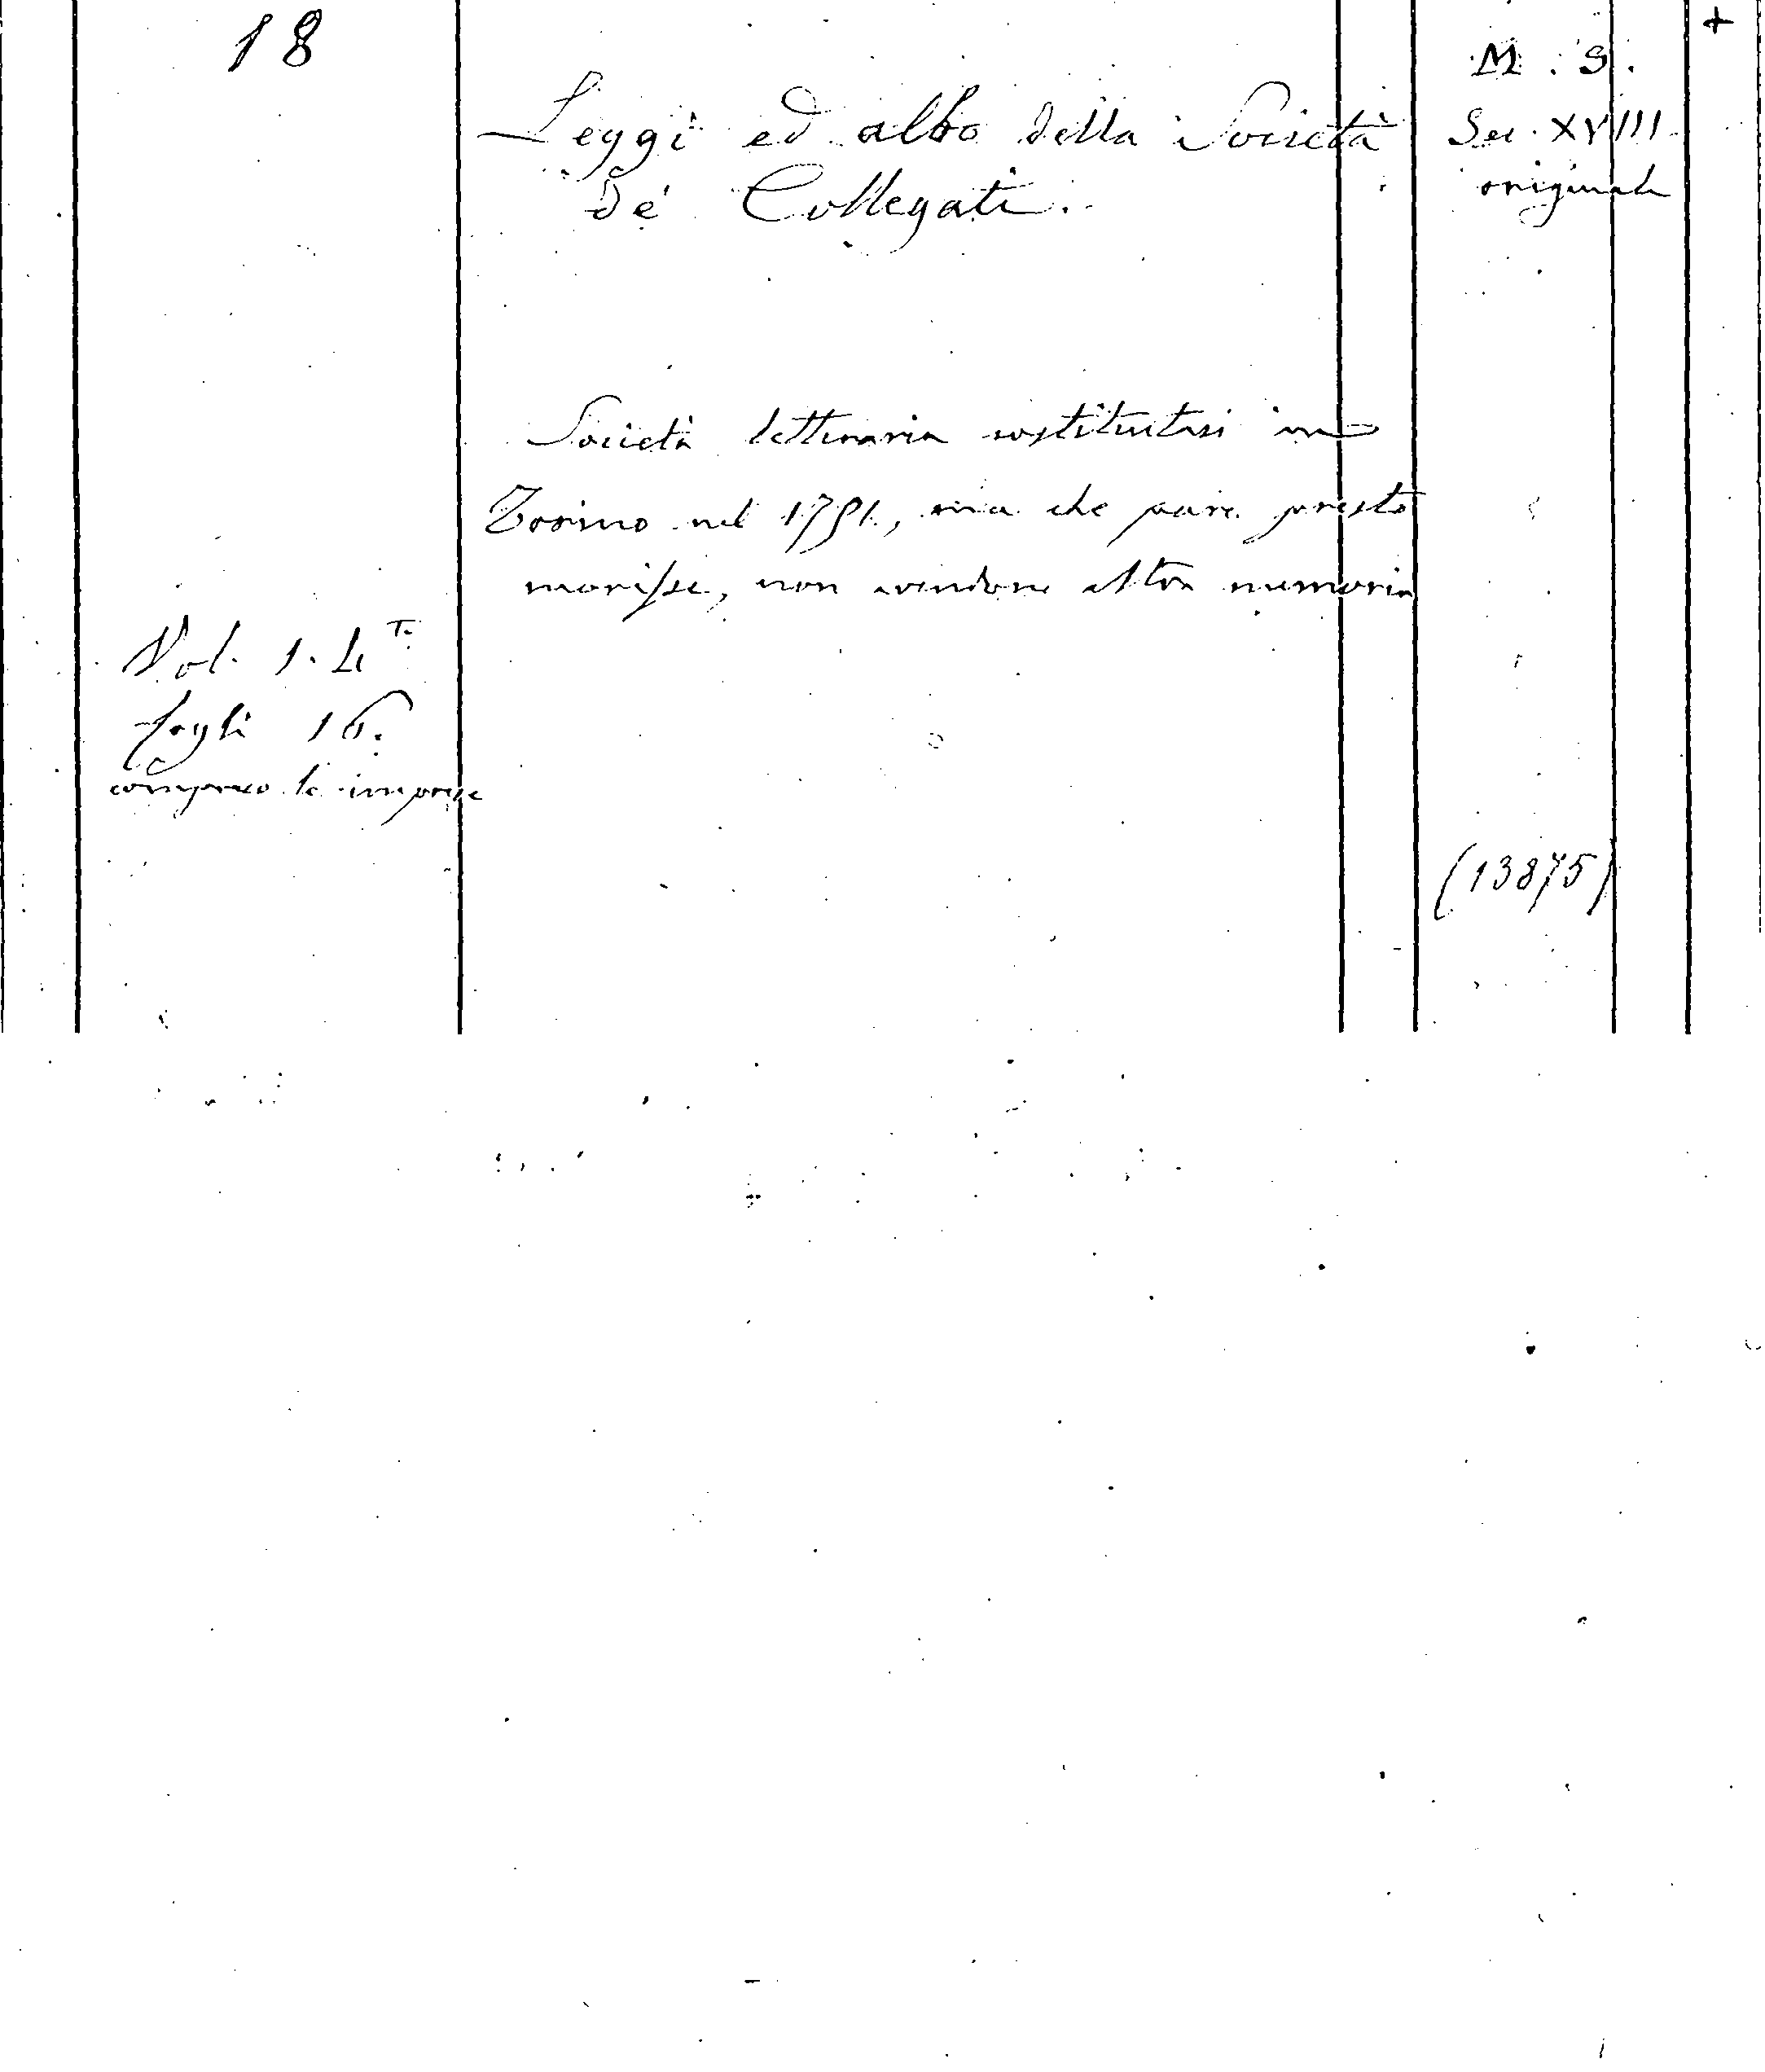 18
Leggi ed albo della Società
de' Collegati.
M. S.
Sec. XVIII
originale
+
Società letteraria costituitasi in
Torino nel 1791, ma che pare presto
morisse, non avendone altra memoria
Vol. 1. 4.to
fogli 16.
compreso le imprese
(13875)